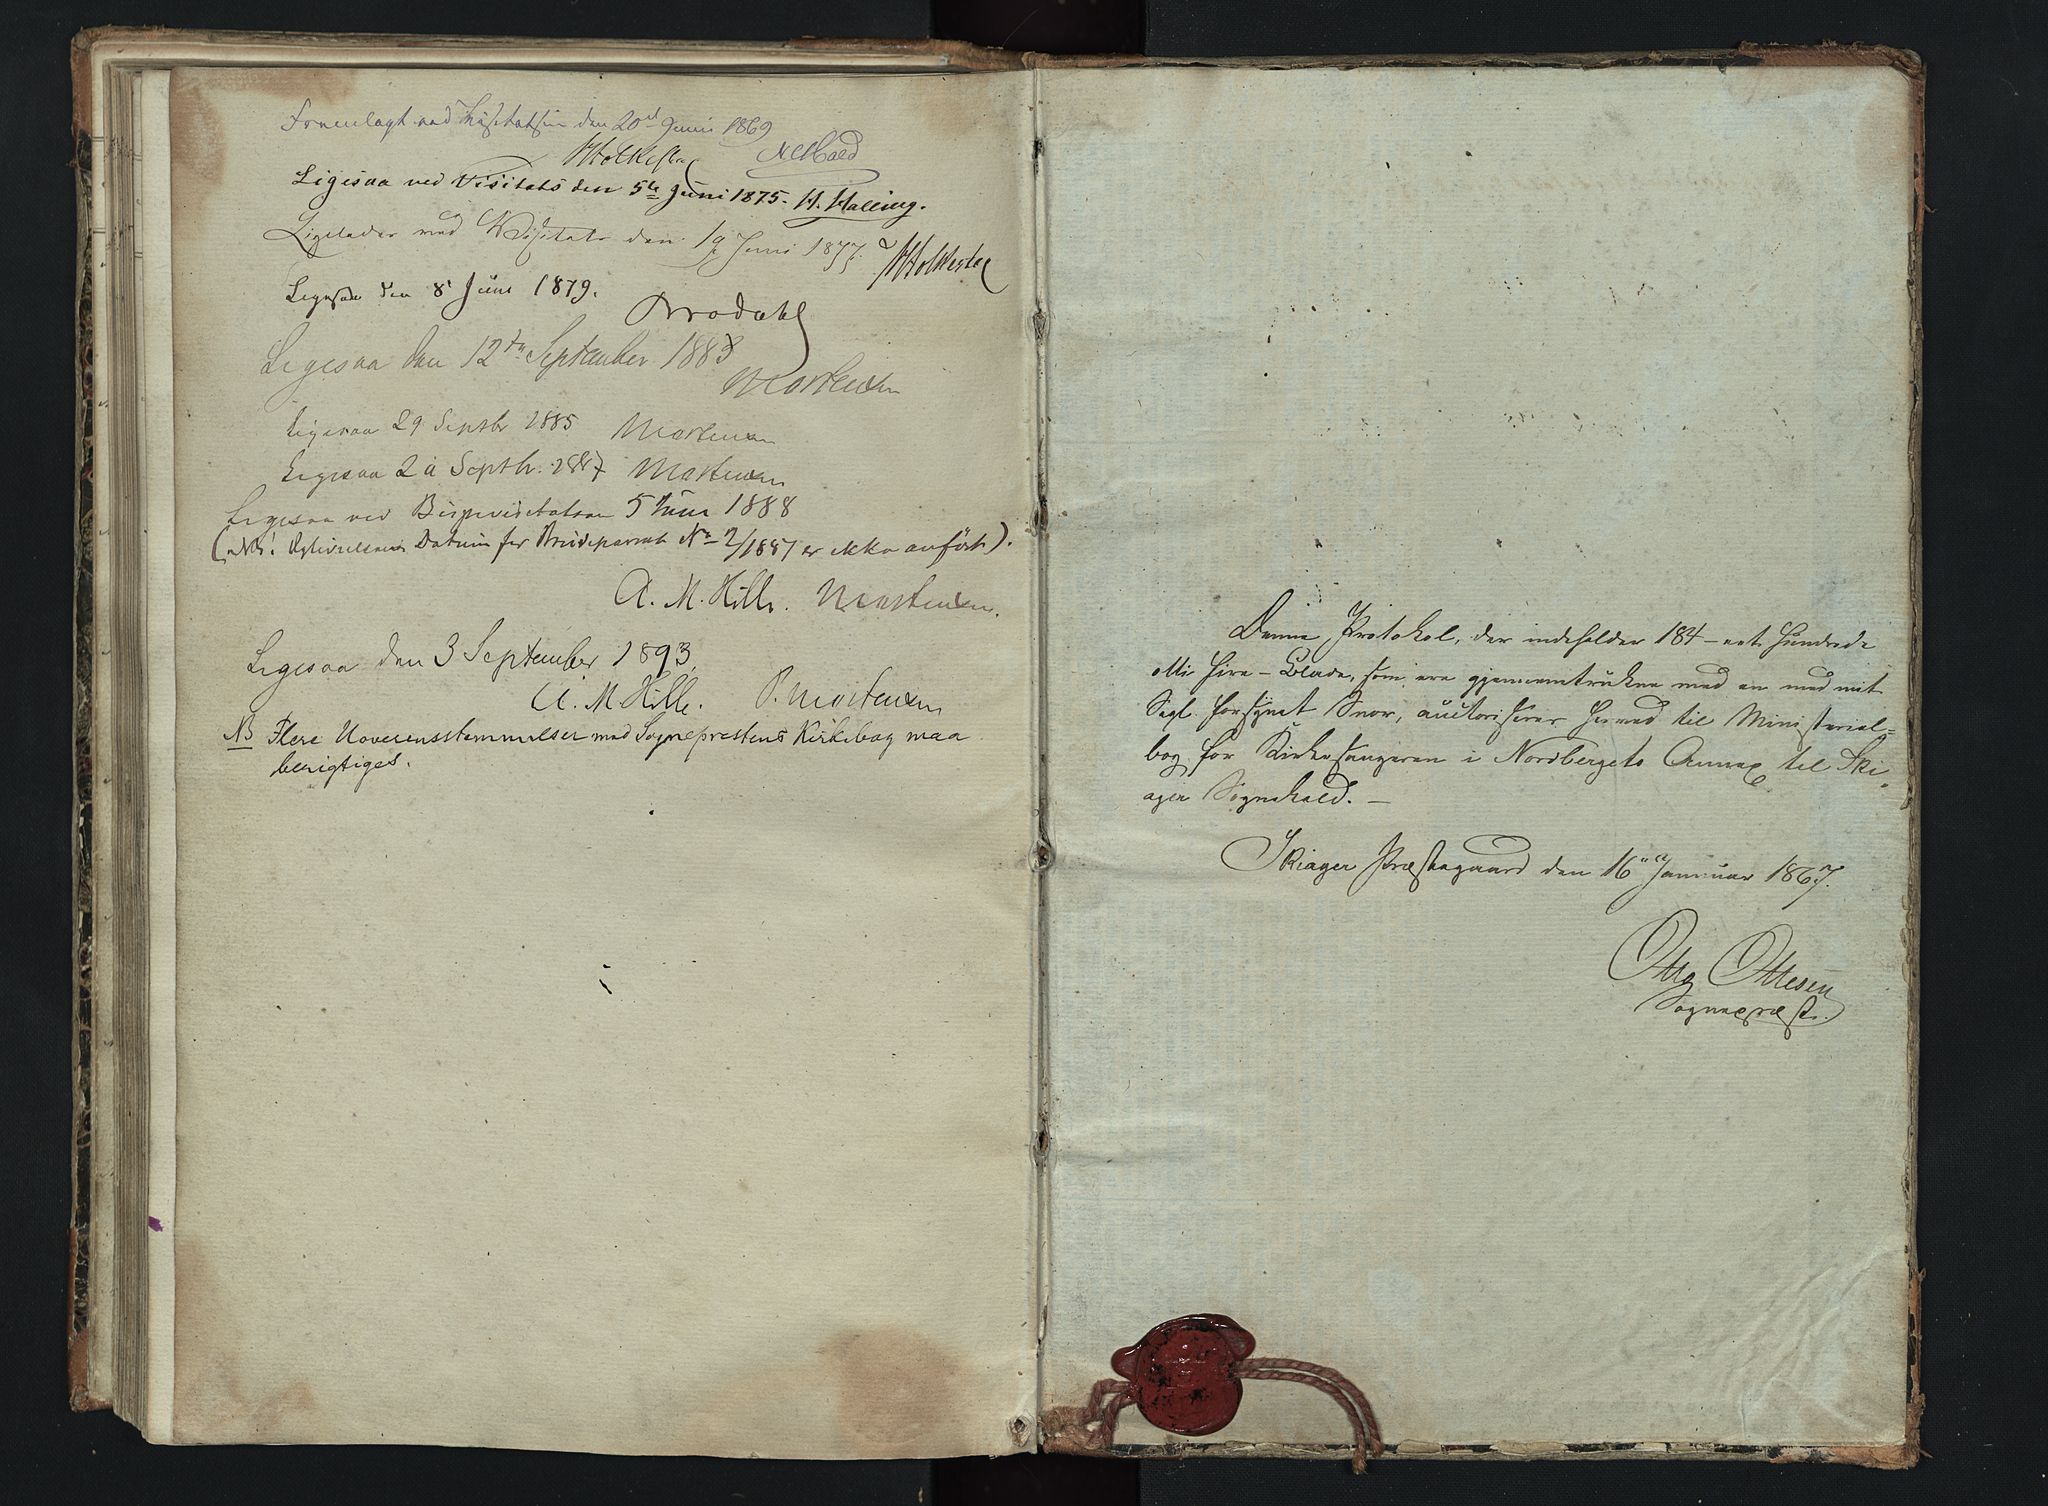 Fremlagt ved Visitatsen den 20de Juni 1869
Ligesaa ved Visitats den 5te Juni 1875. H. Halling.
Ligeledes ved Visitats den 19 Juni 1877.
Ligesaa den 8 Juni 1879.
Brodahl
Ligesaa den 12te September 1883
Mortensen
Ligesaa 29 Septbr 1885 Mortensen
Ligesaa Septbr. 1887 Mortensen
Ligesaa ved Bispevisitatsen 5 Juni 1888
Datum for Brudeparret No 2/1887 er ikke anført).
A. M. Hille. Mortensen.
Ligesaa den 3 September 1893.
A. M. Hille. P. Mortensen
NB Flere Uoverensstemmelser med Sogneprestens Kirkebog maa
berigtiges.
Denne Protokol, der indeholder 184 – eet Hundrede
otti fire – Blade, som ere gjennemtrukne med en med mit
Segl forsynet Snor, autoriseres herved til Ministerial-
bog for Kirkesangeren i Nordbergets Annex til Ski-
ager Sognekald. –
Skiager Præstegaard den 16 Januar 1867.
Otto Ottesen
Sognepræst.